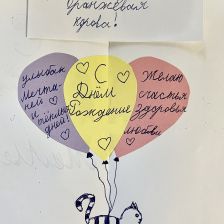 Оранжевая
корова!
улыбок
мечта-
ний
и
тёплых
дней!
С
Днём
Рождения
Желаю
счастья
здоровья
любви